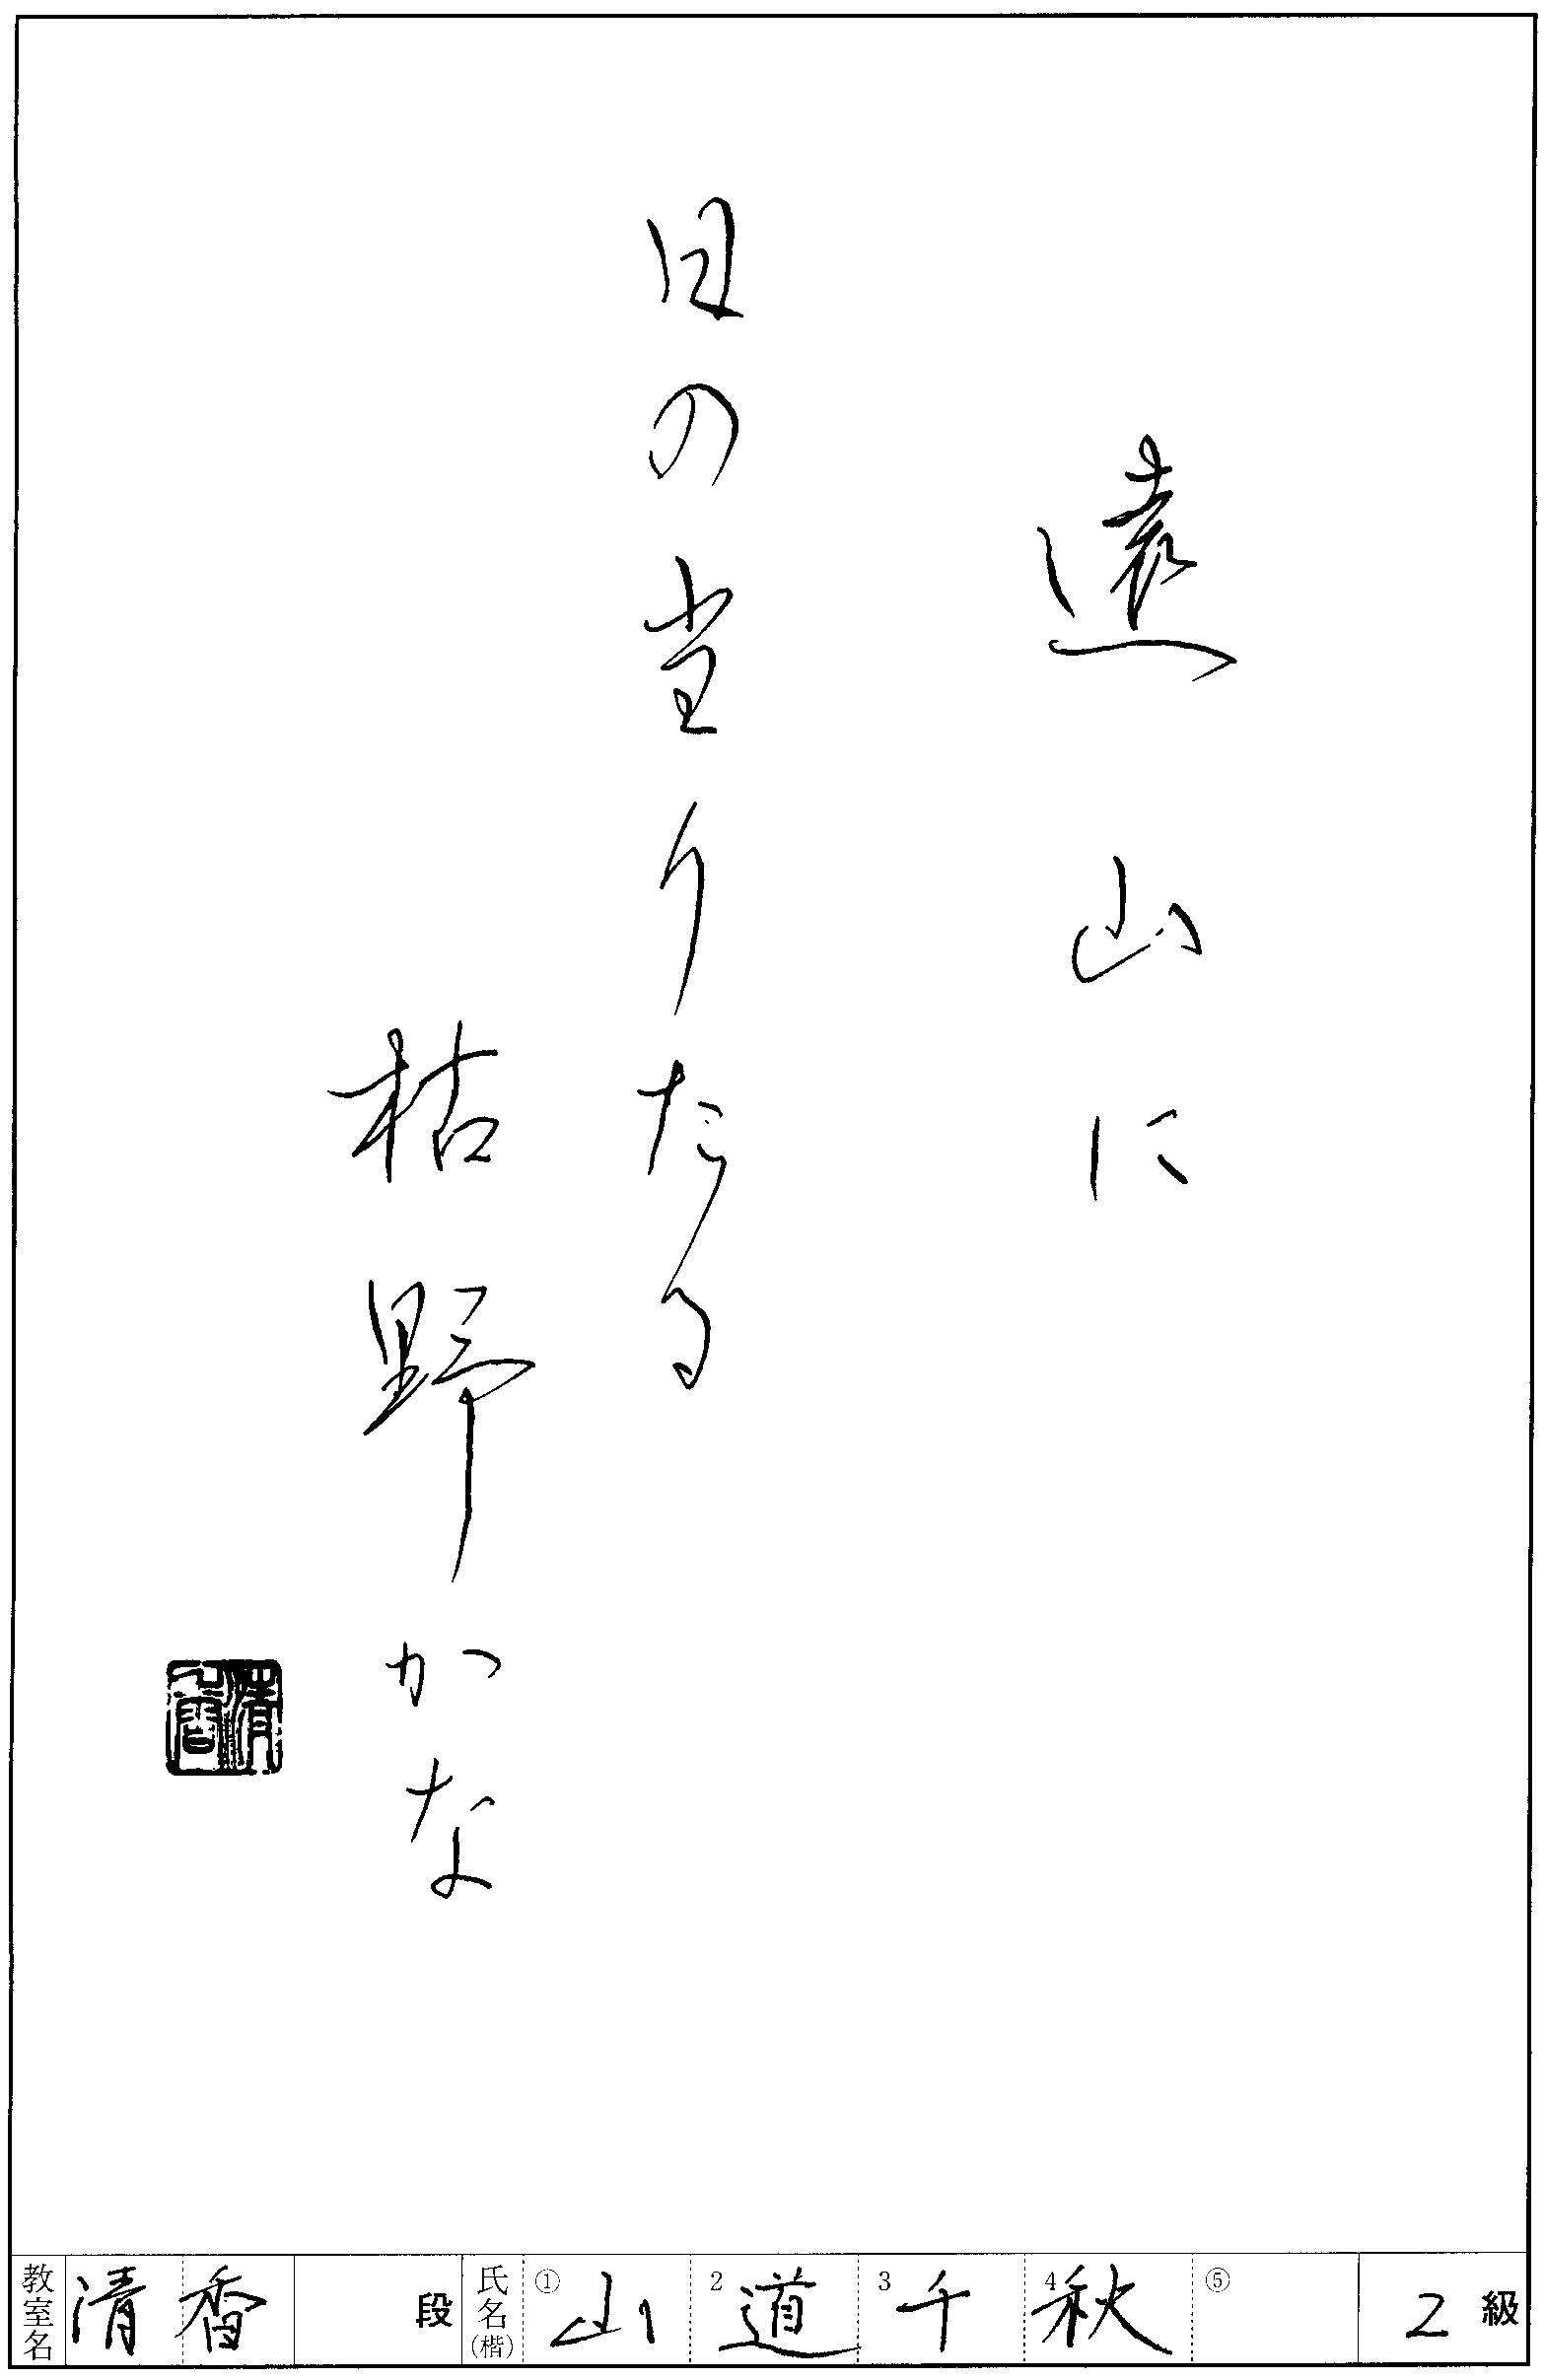 遠山に
日の当りたる
枯野かな
清香
教室名 清香 段 氏名(楷) ①山 2道 3千 4秋 ⑤ 2級